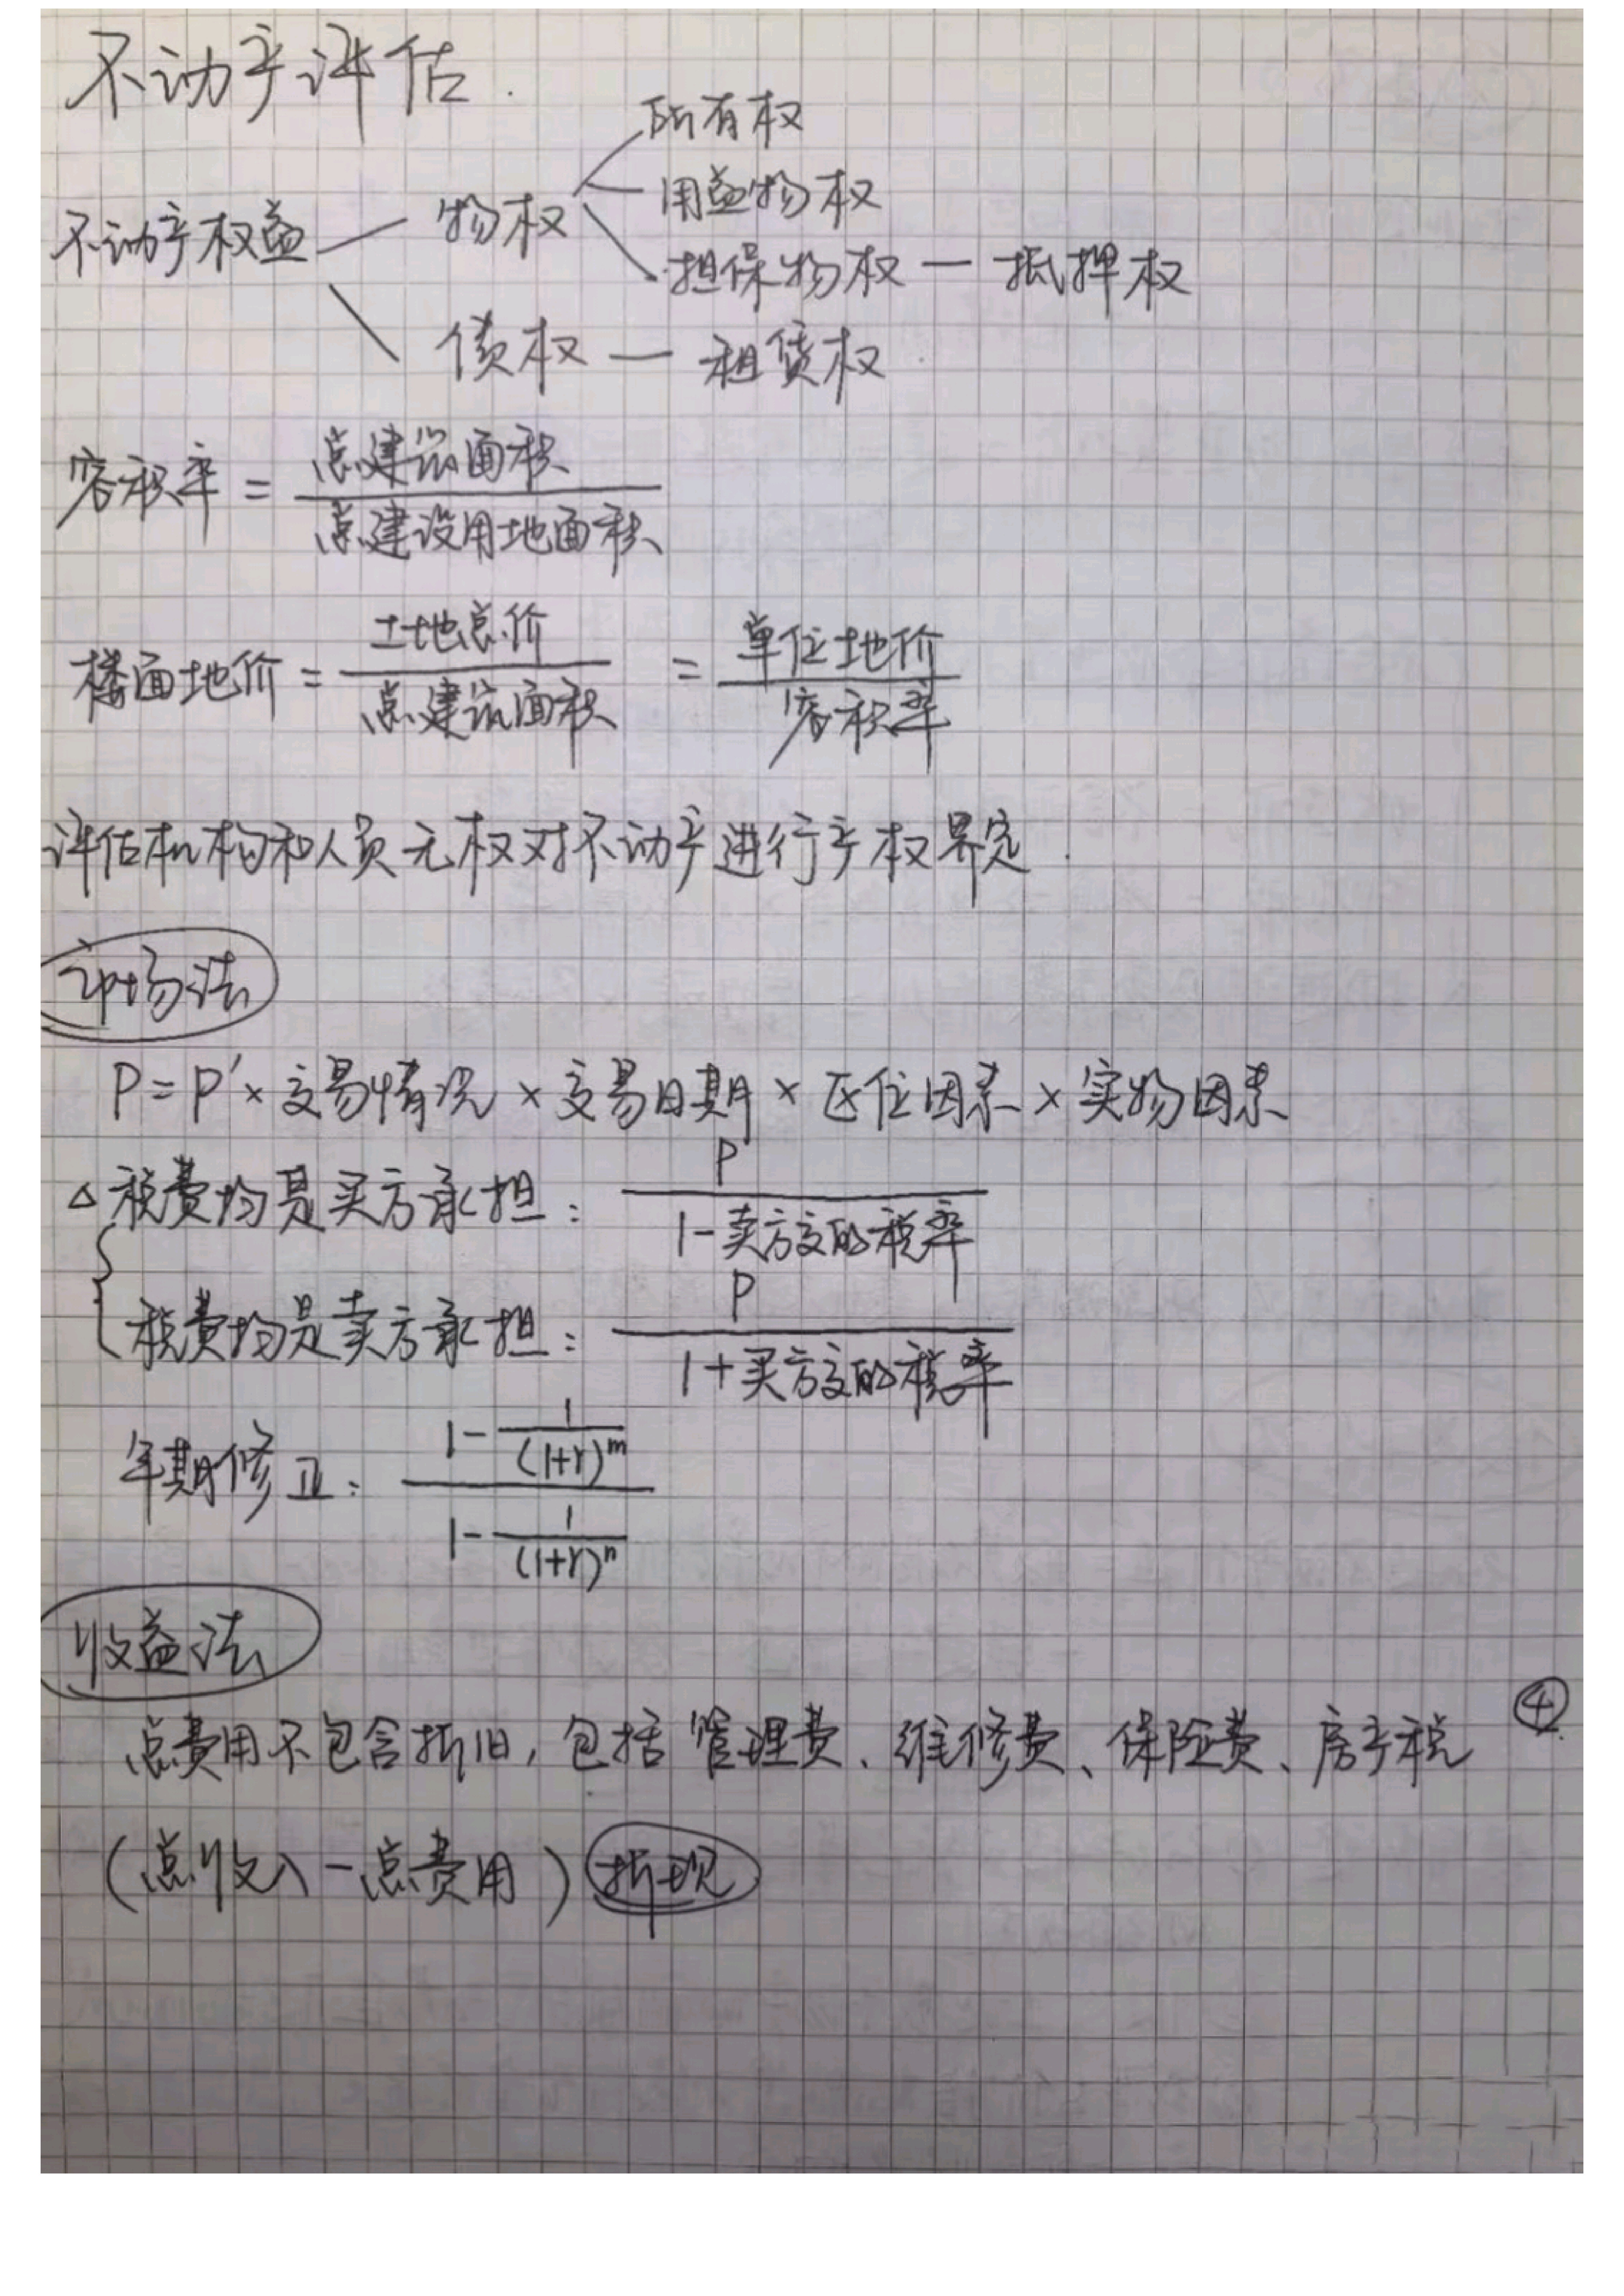 不动产评估.
所有权
不动产权益 — 物权 用益物权
担保物权 — 抵押权
债权 — 租赁权
容积率 = 总建筑面积 / 总建设用地面积
楼面地价 = 土地总价 / 总建筑面积 = 单位地价 / 容积率
评估机构和人员无权对不动产进行产权界定.
市场法
P = P′ × 交易情况 × 交易日期 × 区位因素 × 实物因素
△ 税费均是买方承担: P / (1-卖方交的税率)
税费均是卖方承担: P / (1+买方交的税率)
年期修正: (1 - 1/(1+r)^m) / (1 - 1/(1+r)^n)
收益法
④
总费用不包含折旧, 包括管理费、维修费、保险费、房产税
(总收入 - 总费用) 折现